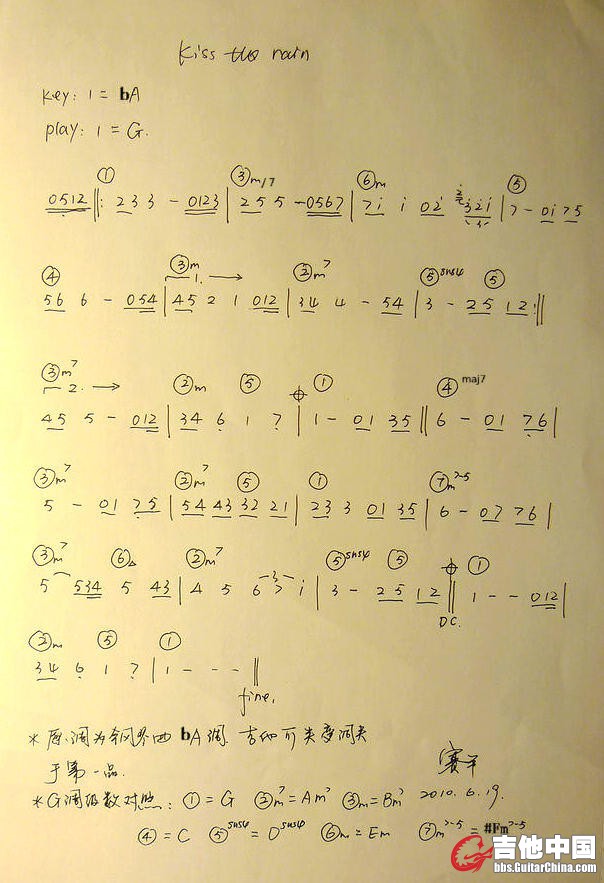 Kiss the rain
key: 1 = bA
play: 1 = G.
① ③m/7 ⑥m ⑤
0512 ‖: 2 3 3 - 0123 | 2 5 5 - 0567 | 7 i i 0 2 3 2 i | 7 - 0 i 7 5
④ ③m 1. ②m7 ⑤sus4 ⑤
5 6 6 - 0 5 4 | 4 5 2 1 0 1 2 | 3 4 4 - 5 4 | 3 - 2 5 1 2 :‖
③m7 2. ②m ⑤ ① ④maj7
4 5 5 - 0 1 2 | 3 4 6 1 7 | 1 - 0 1 3 5 ‖ 6 - 0 1 7 6 |
③m7 ②m7 ⑤ ① ⑦m7-5
5 - 0 1 7 5 | 5 4 4 3 3 2 2 1 | 2 3 3 0 1 3 5 | 6 - 0 7 7 6 |
③m7 ⑥△ ②m7 ⑤sus4 ⑤ ①
5 5 3 4 5 4 3 | 4 5 6 7 i | 3 - 2 5 1 2 ‖ 1 - - 0 1 2 |
3
D.C.
②m ⑤ ①
3 4 6 1 7 | 1 - - - ‖
fine.
* 原调为 bA调. 吉他可 变调夹
于第一品.
* G调级数对照: ① = G ②m7 = Am7 ③m7 = Bm7
2010. 6. 19.
④ = C ⑤sus4 = Dsus4 ⑥m = Em ⑦m7-5 = #Fm7-5
吉他中国
bbs.GuitarChina.com